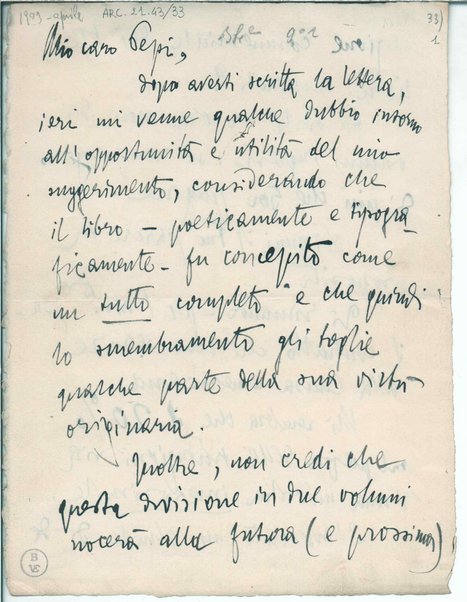 1903 - aprile ARC. 21.43/33
33)
1
Mio caro Pepi,
dopo averti scritta la lettera,
ieri mi venne qualche dubbio intorno
all'opportunità e utilità del mio
suggerimento, considerando che
il libro – poeticamente e tipogra-
ficamente – fu concepito come
un tutto completo e che quindi
lo smembramento gli toglie
qualche parte della sua virtù
originaria.
Inoltre, non credi che
questa divisione in due volumi
nocerà alla futura (e prossima)
B
VE